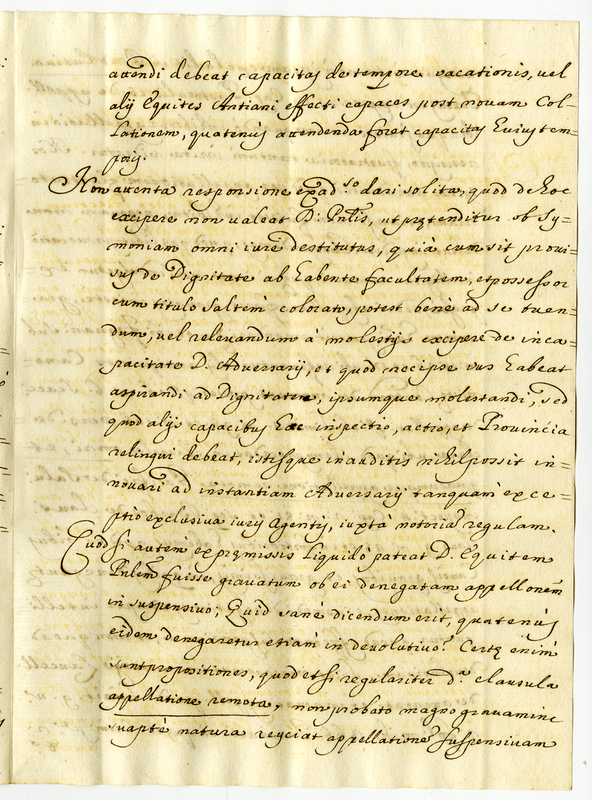 attendi debeat capacitas de tempore vacationis, vel
alij Equites Antiani effecti capaces post novam Col=
lationem, quatenus attendenda foret capacitas huius tem=
poris.
Non attenta responsione ex ad.so dari solita, quod de hoc
excipere non valeat D: Pntis, ut prętenditur ob Sy=
moniam omni iure destitutus, quia cum sit provi=
sus de Dignitate ab habente facultatem, et possessor
cum titulo saltem colorato, potest bene ad se tuen=
dum, vel relevandum à molestijs excipere de inca=
pacitate D. Adversarij, et quod nec ipse ius habeat
aspirandi ad Dignitatem, ipsumque molestandi, sed
quod alijs capacibus hęc inspectio, actio, et Provincia
relinqui debeat, istisque inauditis nihil possit in=
novari ad instantiam Adversarij tanquam exce=
ptio exclusiva iuris Agentis, iuxta notoria regulam.
Quod si autem ex pręmissis liquidò pateat D. Equitem
Pntem fuisse gravatum ob ei denegatam appellonem
in suspensivo; Quid sanè dicendum erit, quatenus
eidem denegaretur etiam in devolutivo? Certę enim
sunt propositiones, quod etsi regulariter d.a clausula
appellatione remota, non probato magno gravamine
suaptè natura reijciat appellatione suspensivam